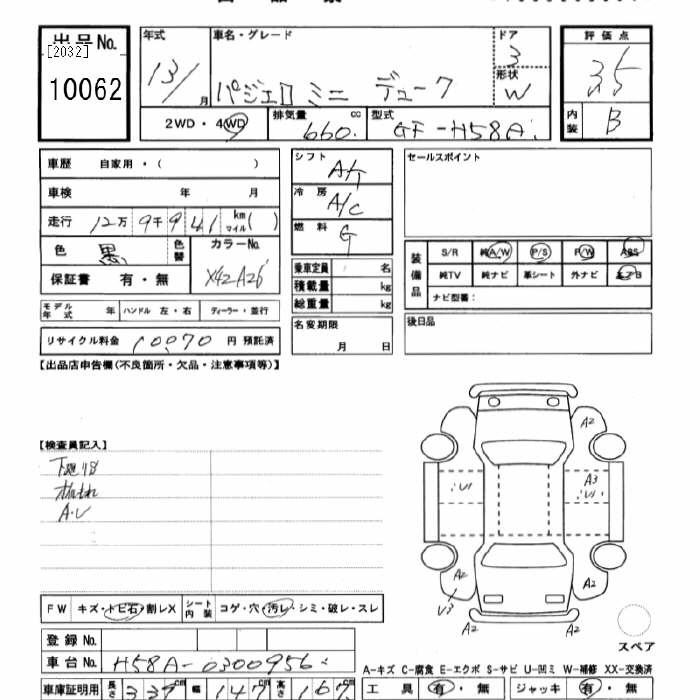 出品No.
[2032]
10062
年式
13/
月
車名・グレード
パジェロ ミニ デューク
ドア
3
形状
W
評価点
3.5
内装
B
2WD・4WD
排気量
cc
660.
型式
GF-H58A
車歴 自家用・( )
車検 年 月
走行 12万9千941 km マイル( )
色 黒 色替
カラーNo.
X42A26
保証書 有・無
シフト
A/T
冷房
A/C
燃料
G
乗車定員 名
積載量 kg
総重量 kg
名変期限
月 日
セールスポイント
装備品
S/R 純A/W P/S P/W ABS
純TV 純ナビ 革シート 外ナビ エアB
ナビ型番:
後日品
モデル年式 年 ハンドル 左・右 ディーラー・並行
リサイクル料金 10070 円 預託済
【出品店申告欄(不良箇所・欠品・注意事項等)】
【検査員記入】
A・V
A2
V1
A3
V1
A2
A2
V3
A2
A2
スペア
FW キズ・トビ石・割レX シート内装 コゲ・穴・汚レ・シミ・破レ・スレ
登録No.
車台No. H58A-0300956
A-キズ C-腐食 E-エクボ S-サビ U-凹ミ W-補修 XX-交換済
車庫証明用 長さ 339cm 幅 147cm 高さ 167cm
工具 有・無 ジャッキ 有・無